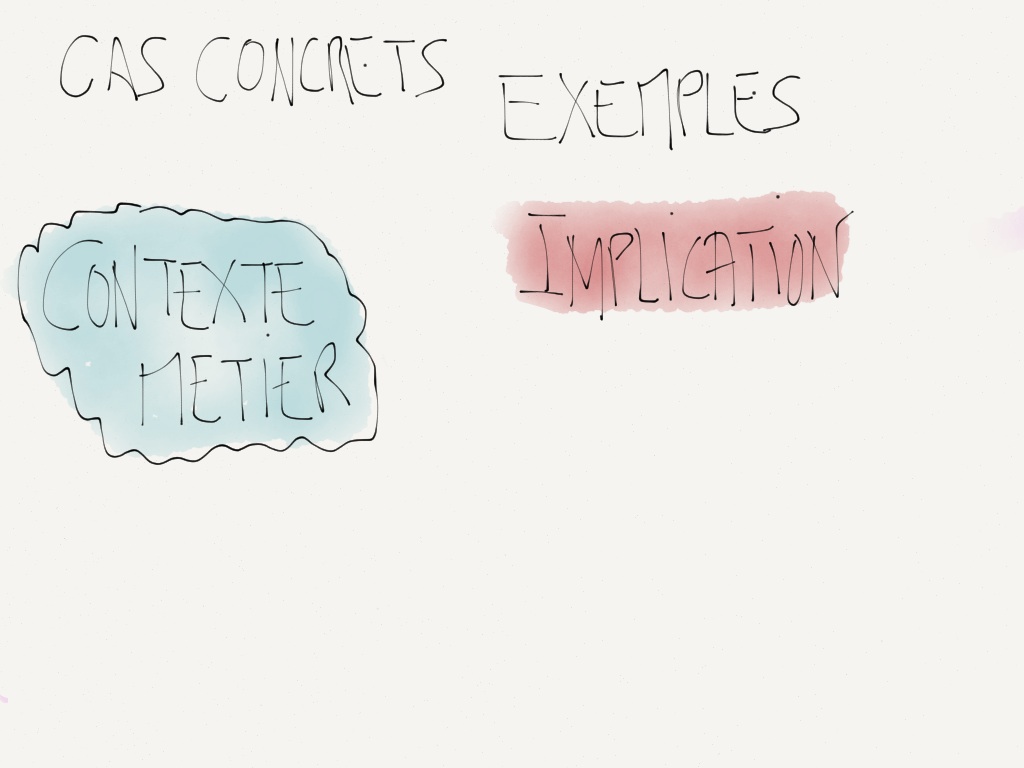 CAS CONCRETS
EXEMPLES
CONTEXTE
METIER
IMPLICATION